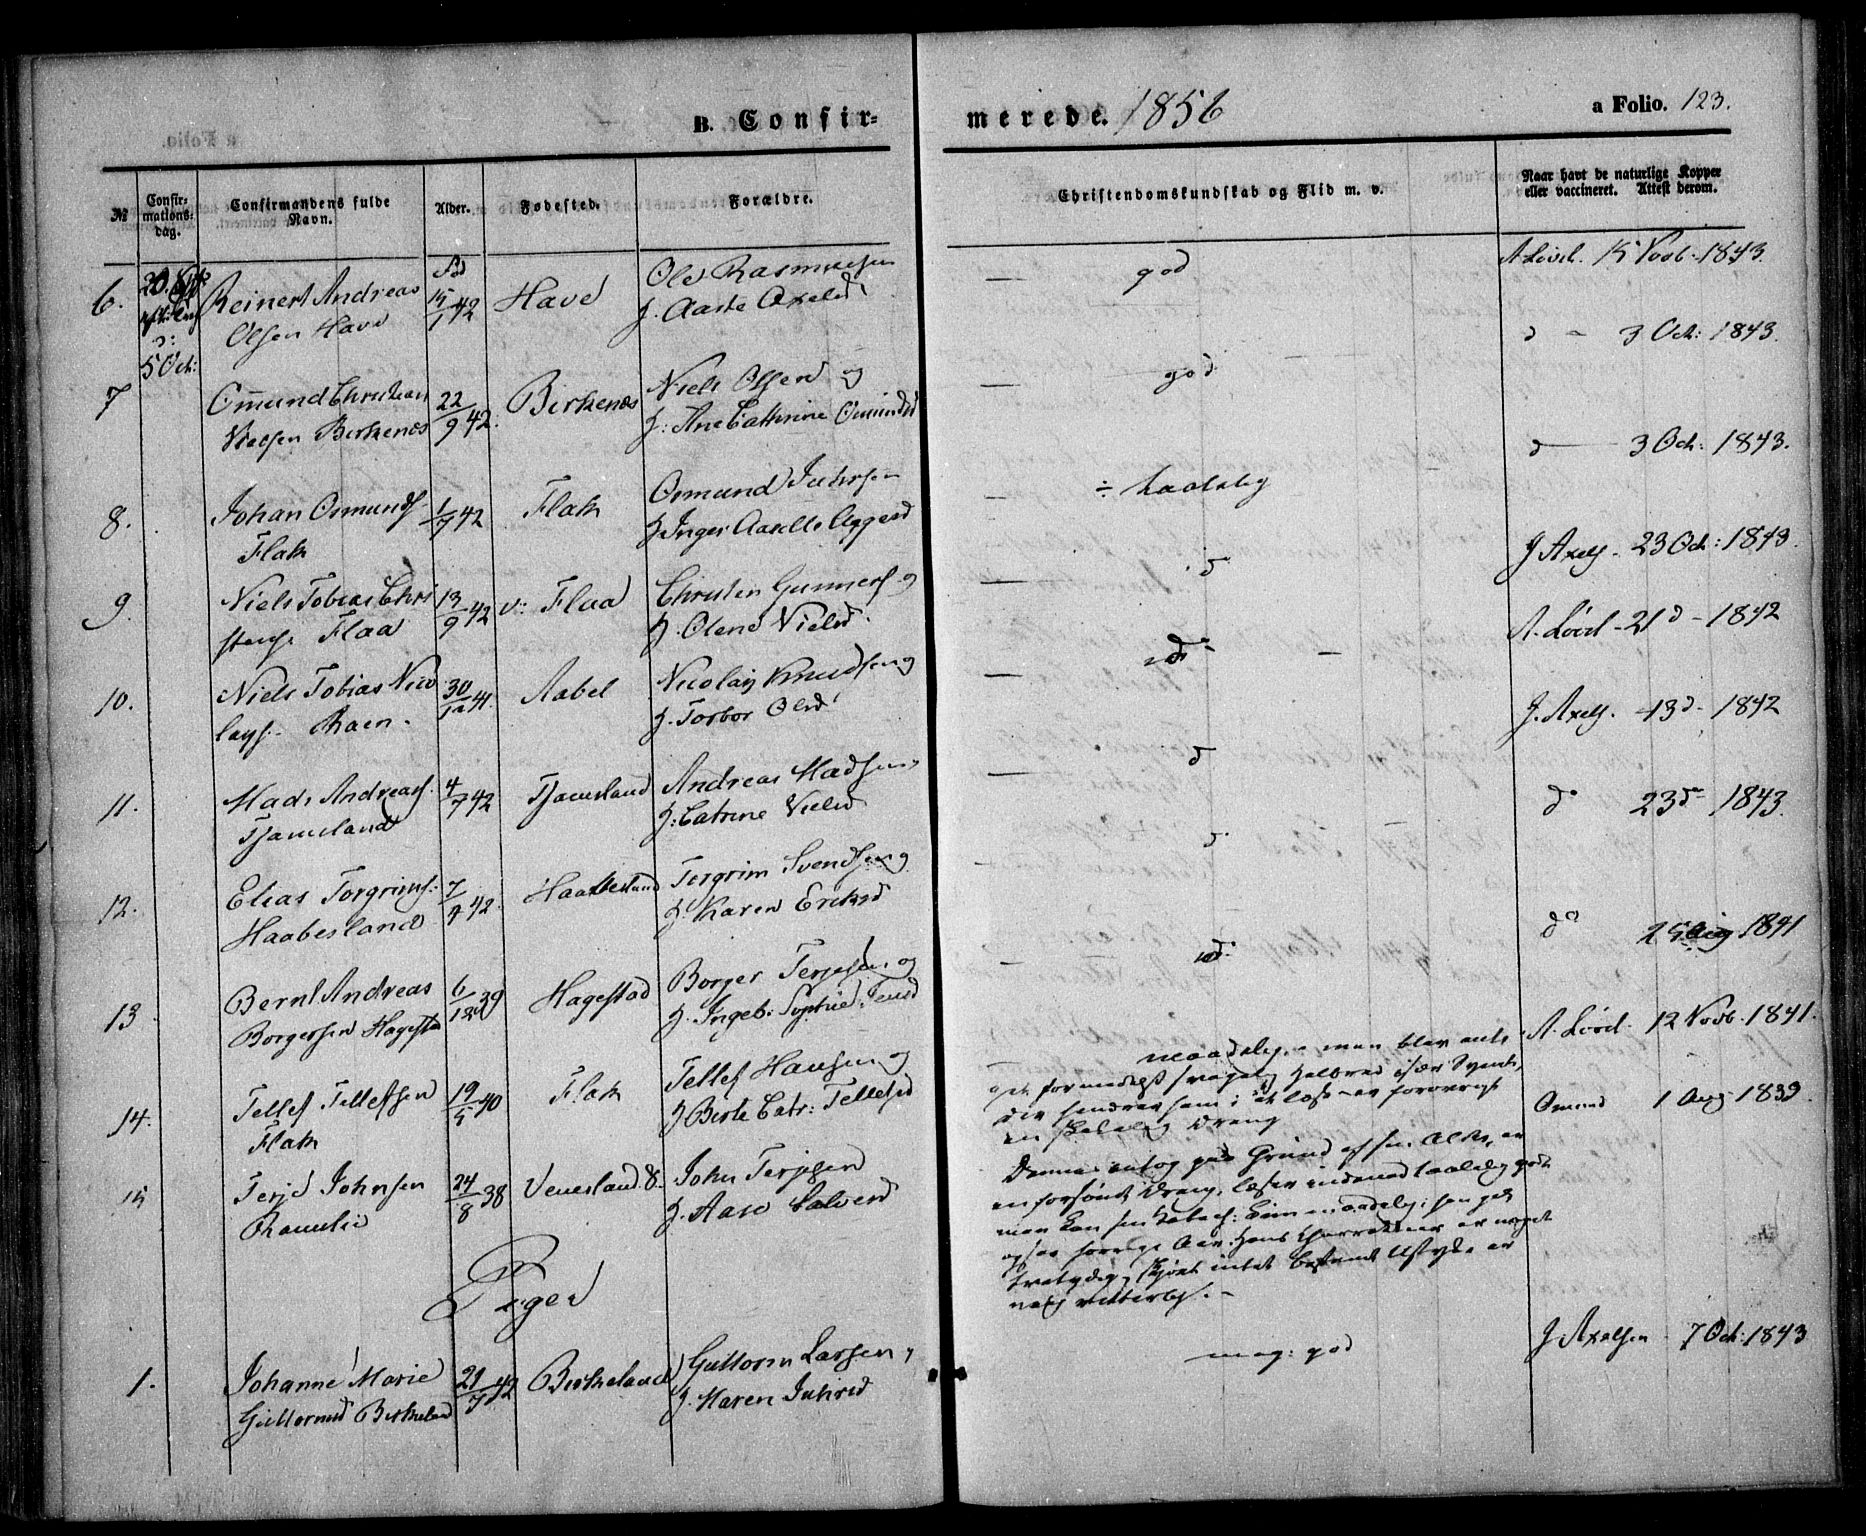 B. Confir-
merede. 1856
a Folio. 123.
№
Confir-
mations-
dag.
Confirmandens fulde
Navn.
Alder.
Fødested.
Forældre.
Christendomskundskab og Flid m. v.
Naar havt de naturlige Kopper
eller vaccineret. Attest derom.
6.
5 Oct:
Reinert Andreas
Olsen Have
15/1 42
Have
Ole Rasmussen
H. Aaste Axelsd
god
A Løvd. 15 Novb. 1843.
7
Omund Christian
Nielsen Birkenæs
22/9 42.
Birkenæs
Niels Olsen og
H: Ane Cathrine Omundsd
god
d - 3 Oct: 1843.
8.
Johan Osmunds.
Flak
1/7 42
Flak
Osmund
H Inger
÷ taalelig
d 3 Oct: 1843.
9.
Niels Tobias Chri
stens. Flaa
13/9 42
v: Flaa
Christen Gunners. og
H. Olene Nielsd.
d
J Axels. 23 Oct: 1843.
10.
Niels Tobias Nico
lays. Raen.
30/12 41.
Aabel
Nicolay Knudsen og
H. Torbor Olsd
d
A. Løvd. 21 d - 1842
11.
Mads Andreas.
Tjameland
4/7 42
Tjameland
Andreas Madsen
H: Catrine Nielsd
d
J. Axels. 13 d - 1842
12.
Elias Torgrims.
Haabesland
7/7 42.
Haabesland
Torgrim Svendsen og
H. Karen Eriksd
d
d 23 d - 1843.
13
Bernt Andreas
Borgersen Hagestad
6/12 39
Hagestad
Borger Terjesen og
H. Ingeb: Sophie
d.
d 25 Aug 1841
14.
Tellef Tellefsen
Flak
19/5 40
Flak
Tellef Hansen og
H Birte Catr: Tellefsd
maadelig - men blev anta
get formedelst svageligt Helbred især Syn
der hindrer ham i at læse - er forøvrigt
en skikkelig Dreng
A. Løvd. 12 Novb. 1841.
15
Terje Johnsen
Ramslie
24/8 38
Venesland. 8.
John Terjesen
H. Aase Salvesd
Denne antog paa Grund af sin Alder, er
en forsømt Dreng, læser indenad taalelig godt
men kan sin maadelig;
forrige Aar. Hans Charakteer er noget
tvetydig, skjønt intet bestemt Ustykke er
mig vitterligt.
Osmund 1 Aug. 1839.
Piger
1.
Johanne Marie
Guttormsd Birkeland
21/7 42
Birkeland
Guttorm Larsen,
H. Maren
meg: god
J Axelsen 7 Oct: 1843